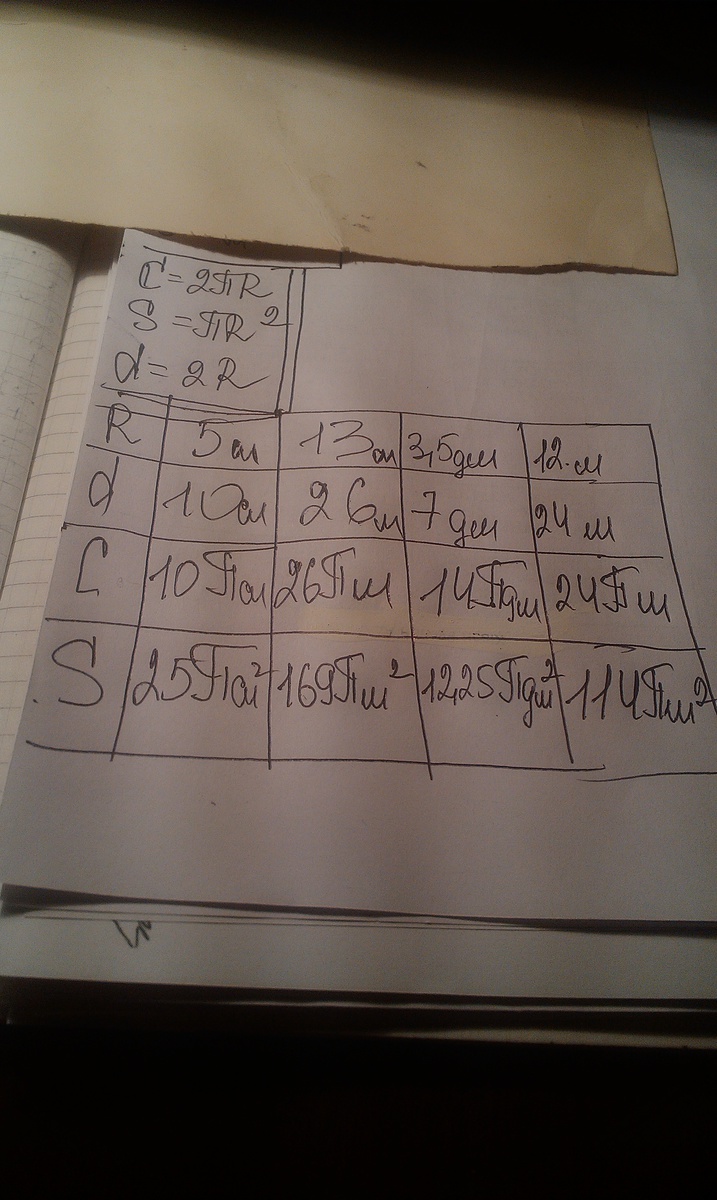 C = 2πR
S = πR²
d = 2R
R 5см 13см 3,5дм 12.м
d 10см 26м 7дм 24м
C 10πсм 26πм 14πдм 24πм
S 25πсм² 169πм² 12,25πдм² 114πм²